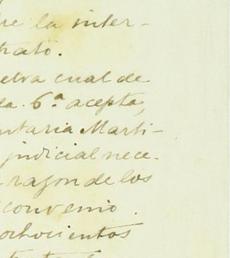 re la inter-
trato.
letra cual de
la 6.ª acepta,
ntaria Marti-
judicial nece-
razon de los
convenio.
ochocientos